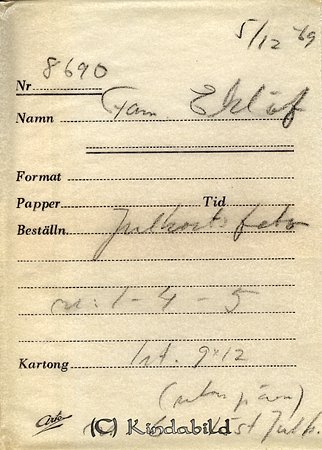 5/12 -69
Nr 8690
Namn Fam Eklöf
Format
Papper Tid
Beställn. Julkorts foto
nr: 1 - 4 - 5
Kartong 1 st. 9x12
(utan
(C) Kindabild Julk.